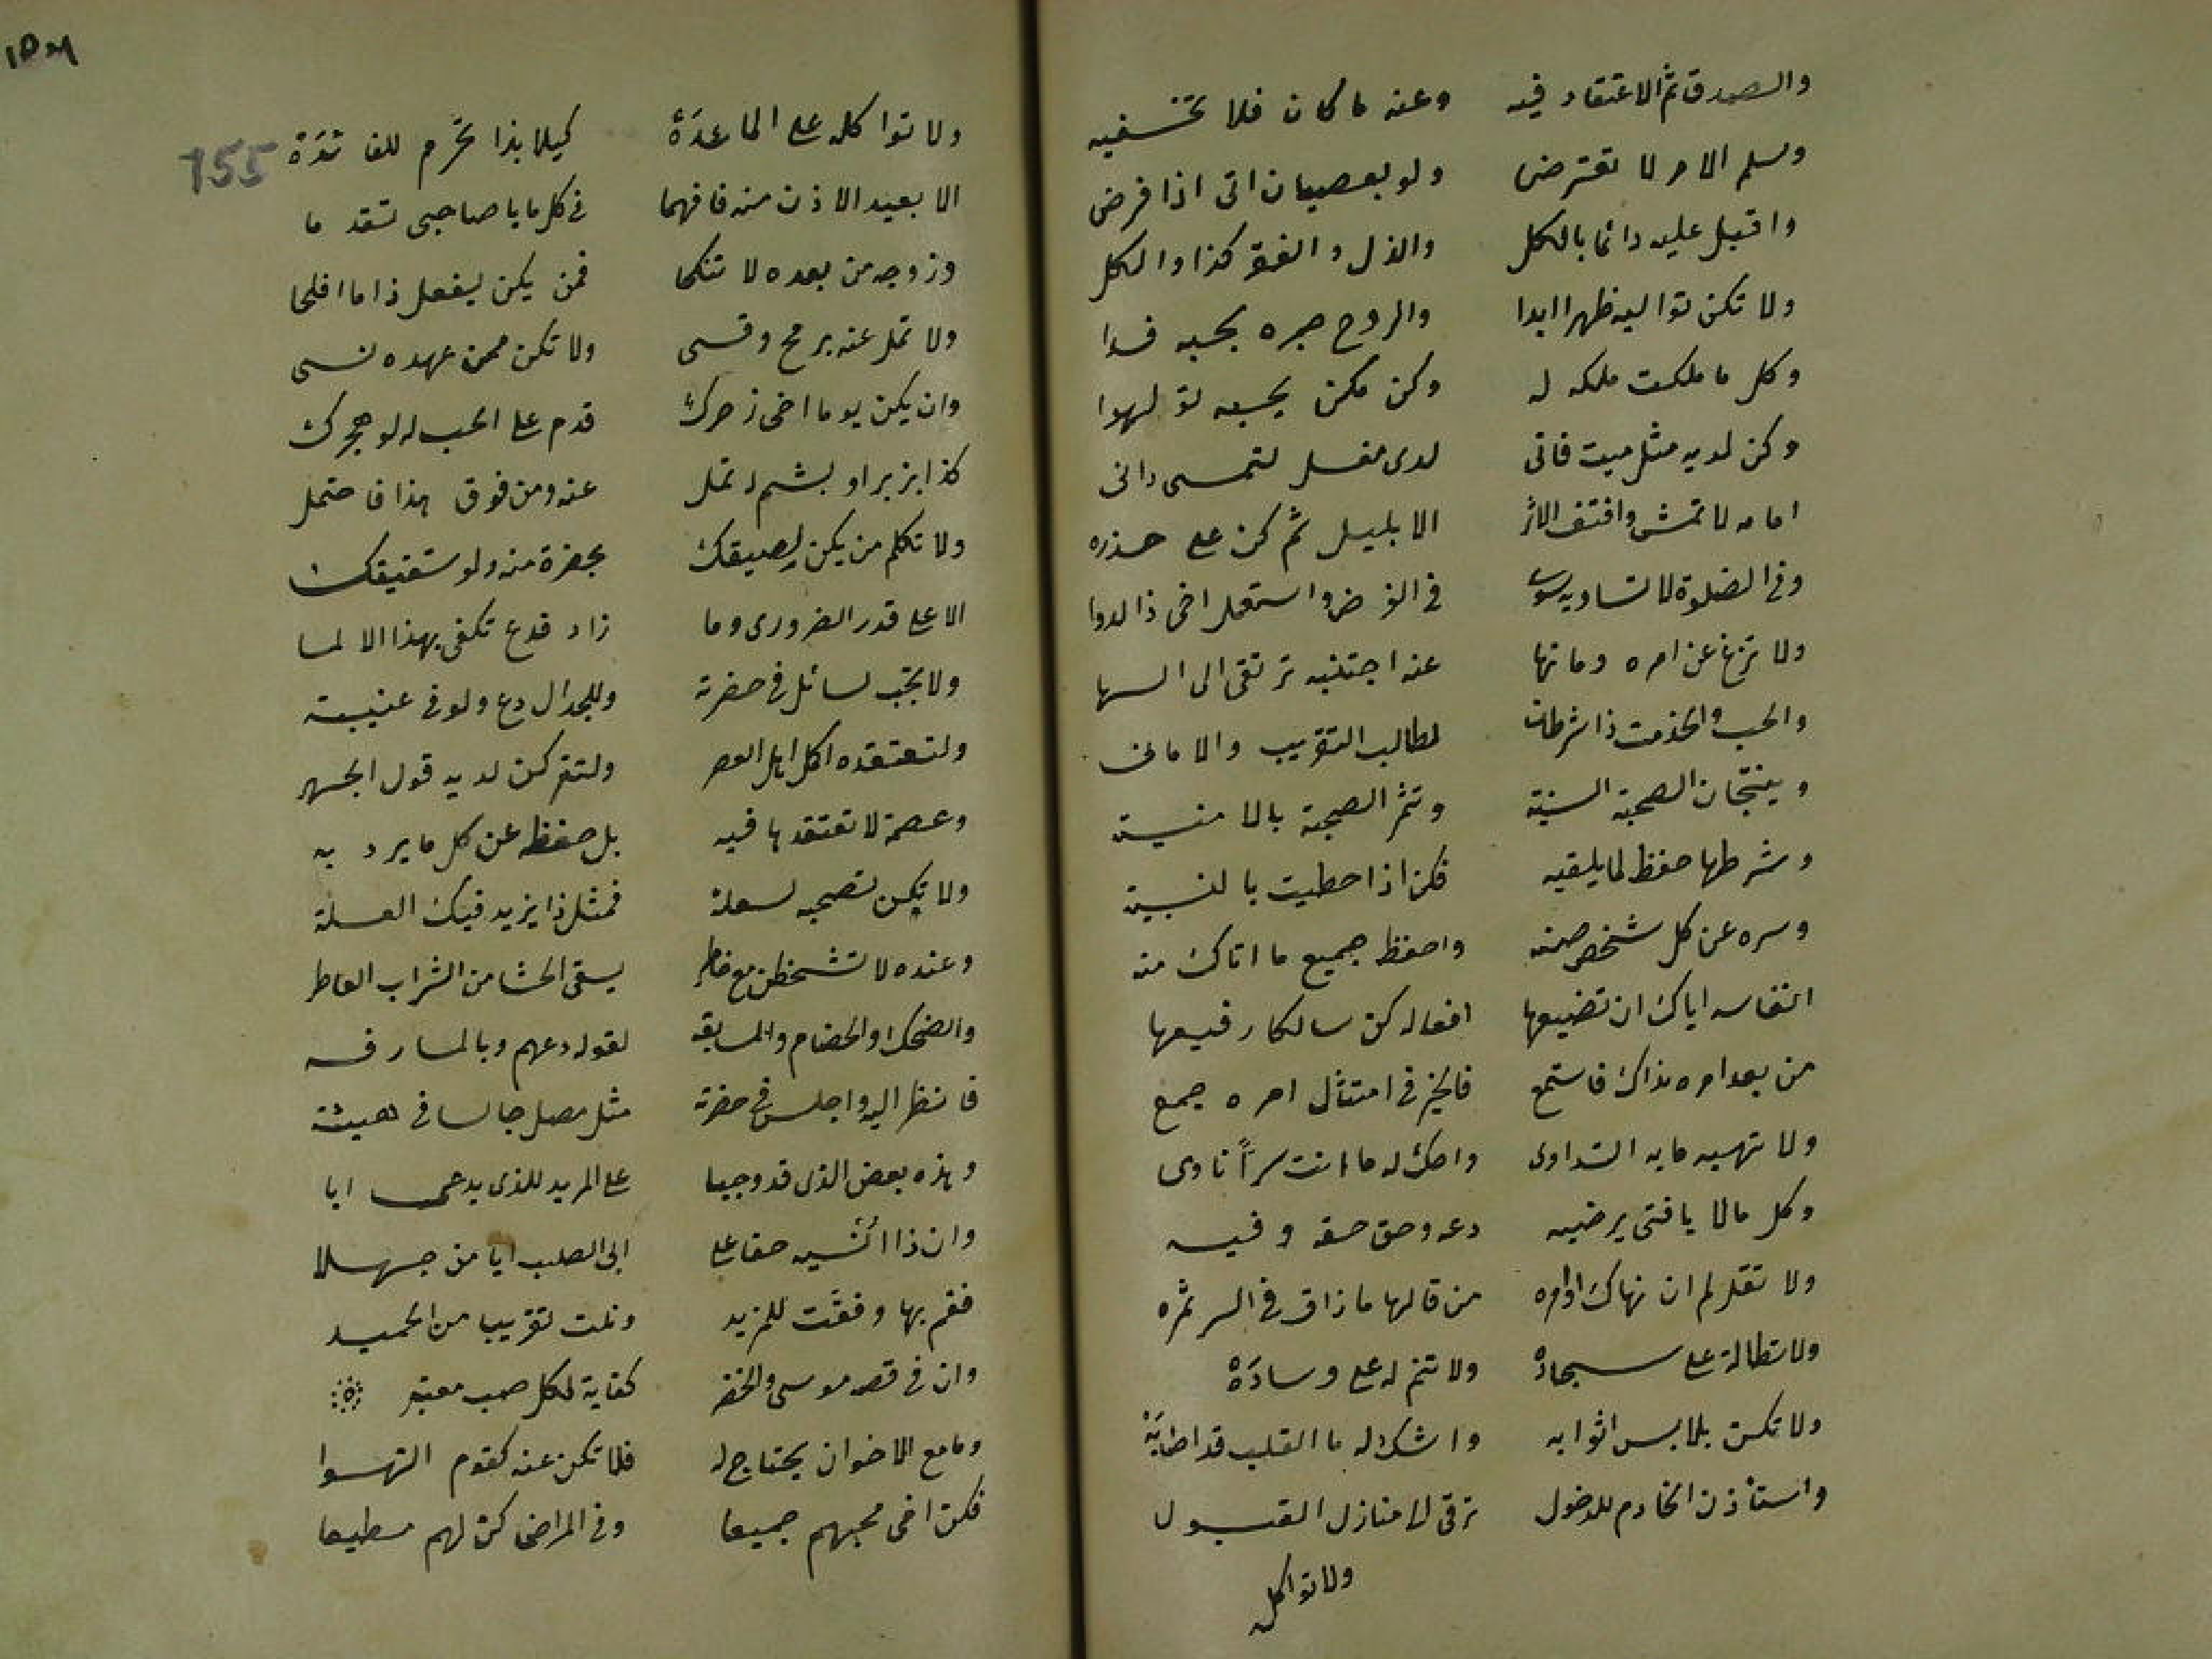 والصدق ثم الاعتقاد فيه وعنه ما كان فلا تخفيه
وسلم الامر لا تعترض ولو بعصيان اتى اذا فرض
واقبل عليه دائما بالكل والذل والفقر كذا والكل
ولا تكن توا ليه ظهرا ابدا والروح صيره بحبه فدا
وكل ما ملكت ملكه له وكن
وكن لديه مثل ميت فانى لدى مغسل لتمسى دانى
امامه لا تمش واقتف الاثر الا بليل ثم كن على حذره
وفى الصلوة لا تساويه سوى فى الفرض واستعمل اخى ذا الدوا
ولا تزغ عن امره وما نها عنه اجتنبه ترتقى الى السها
والحب والخدمت ذا شرطان لطالب التقريب والامانى
وينتجان الصحبة السنية وتثمر الصحبة بالامنية
وشرطها حفظ لما يلقيه فكن اذا حطيت بالنبيه
وسره عن كل شخص صنه واحفظ جميع ما اتاك منه
انفاسه اياك ان تضيعها افعاله كن سالكا رفيعها
من بعد امره بذاك فاستمع فالخير فى امتثال امره جمع
ولا تهبه ما به التداوى واحك له ما انت سراً ناوى
وكل مالا يا فتى يرضيه دعه وحق حقه وفيه
ولا تقل لم ان نهاك اوامره من قالها ما ذاق فى السر ثمره
ولا تطا له على سجادة ولا تنم له على وسادة
ولا تكن بلابس اثوابه واشك له ما القلب قد اصابه
واستأذن الخادم للدخول ترقى الى منازل القبول
ولا تواكل
155
ولا تواكله على المائدة كيلا بذا تحرم للفائدة
الا بعيد الاذن منه فافهما فى كل ما يا صاحبى تقدما
وزوجه من بعده لا تنكحا فمن يكن يفعل ذا ما افلحا
ولا تمل عنه برمح وقسى ولا تكن ممن عهده نسى
وان يكن يوما اخى زجرك قدم على الحب له لو هجرك
كذا بزبر او بشتم لا تمل عنه ومن فوق هذا فاحتمل
ولا تكلم من يكن لصيقك بحضرة منه ولو شقيقك
الا على قدر الضرورى وما زاد فدع تكفى بهذا الالما
ولا تجب لسائل فى حضرته وللجدال دع ولو فى غيبته
ولتعتقده اكل اهل العصر ولتتركن لديه قول الجهر
وعصمة لا تعتقدها فيه بل حفظه عن كل ما يرد به
ولا يكن تصحبه لعلة فمثل ذا يزيد فيك العلة
وعنده لا تشخطن مع خاطر يسقى الحشا من الشراب العاطر
والضحك والخصام والمسابقه لقوله دعهم وبالمسارقه
فانظر اليه واجلس فى حضرته مثل مصل جالسا فى هيئته
وهذه بعض الذى قد وجبا على المريد للذى يدعى ابا
وان ذا انسيه حقا على ابى الصلب ايا من جهلا
فقم بها وفقت للمزيد ونلت تقريبا من الحميد
وان فى قصه موسى والخضر كفاية لكل صب معتبر
ومامع الاخوان يحتاج له فلا تكن عنه كقوم التهوا
فكن اخى محبهم جميعا وفى المراضى كن لهم مطيعا